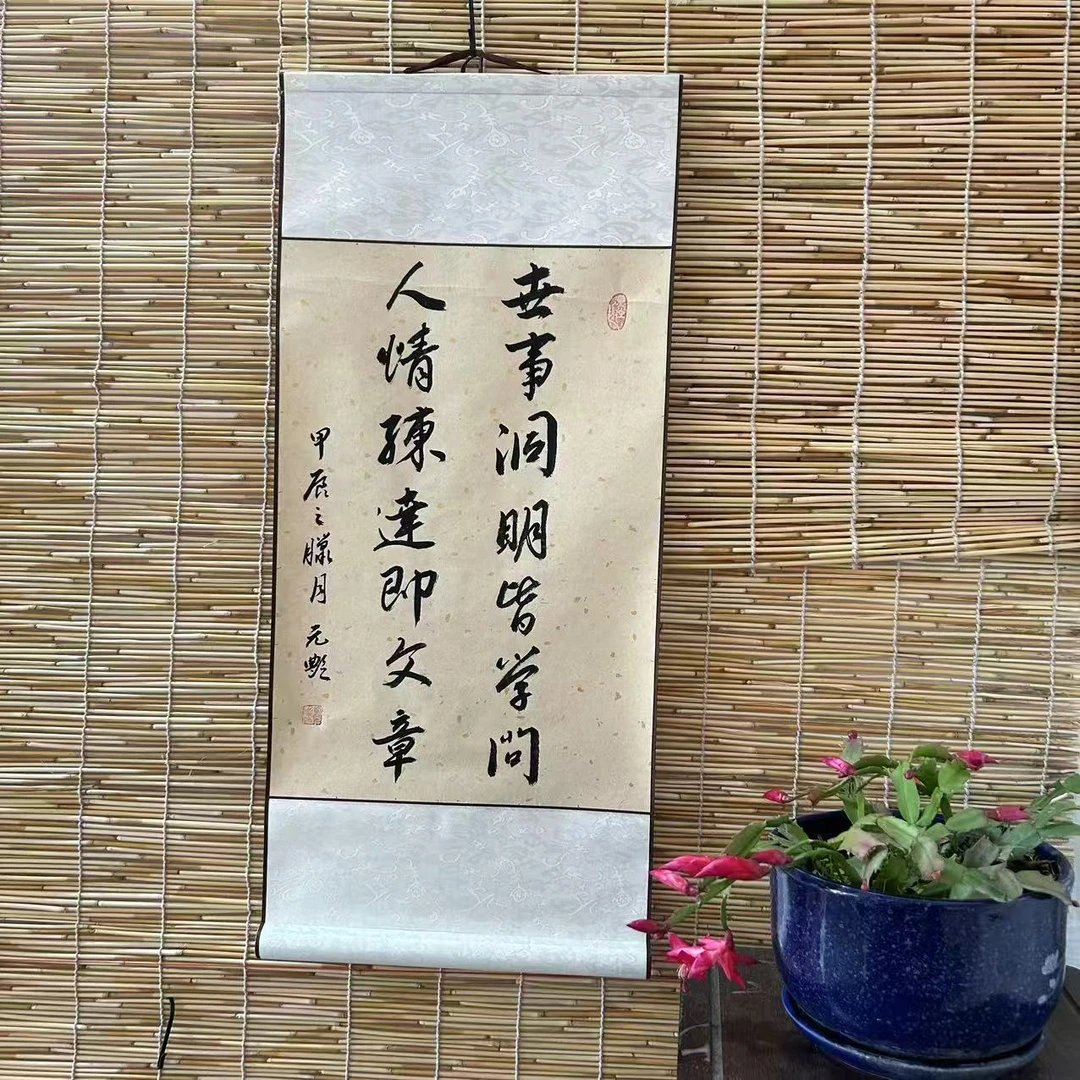 世事洞明皆学问
人情练達即文章
甲辰之臘月 元艷